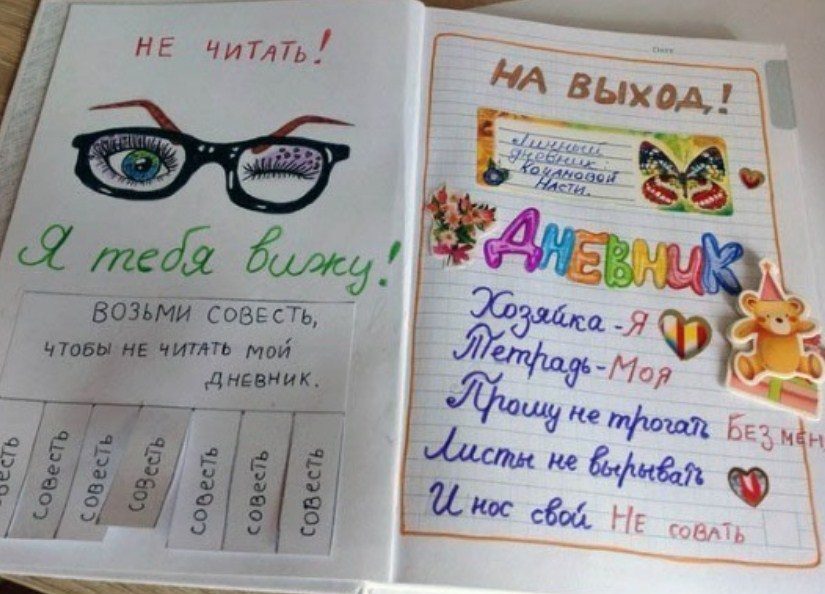 НЕ ЧИТАТЬ!
Я тебя вижу!
ВОЗЬМИ СОВЕСТЬ,
ЧТОБЫ НЕ ЧИТАТЬ МОЙ
ДНЕВНИК.
СОВЕСТЬ
СОВЕСТЬ
СОВЕСТЬ
СОВЕСТЬ
СОВЕСТЬ
СОВЕСТЬ
СОВЕСТЬ
НА ВЫХОД!
Личный
дневник
НАСТИ.
ДНЕВНИК
Хозяйка - Я
Тетрадь - Моя
Прошу не трогать БЕЗ МЕН
Листы не вырывать
И нос свой НЕ СОВАТЬ